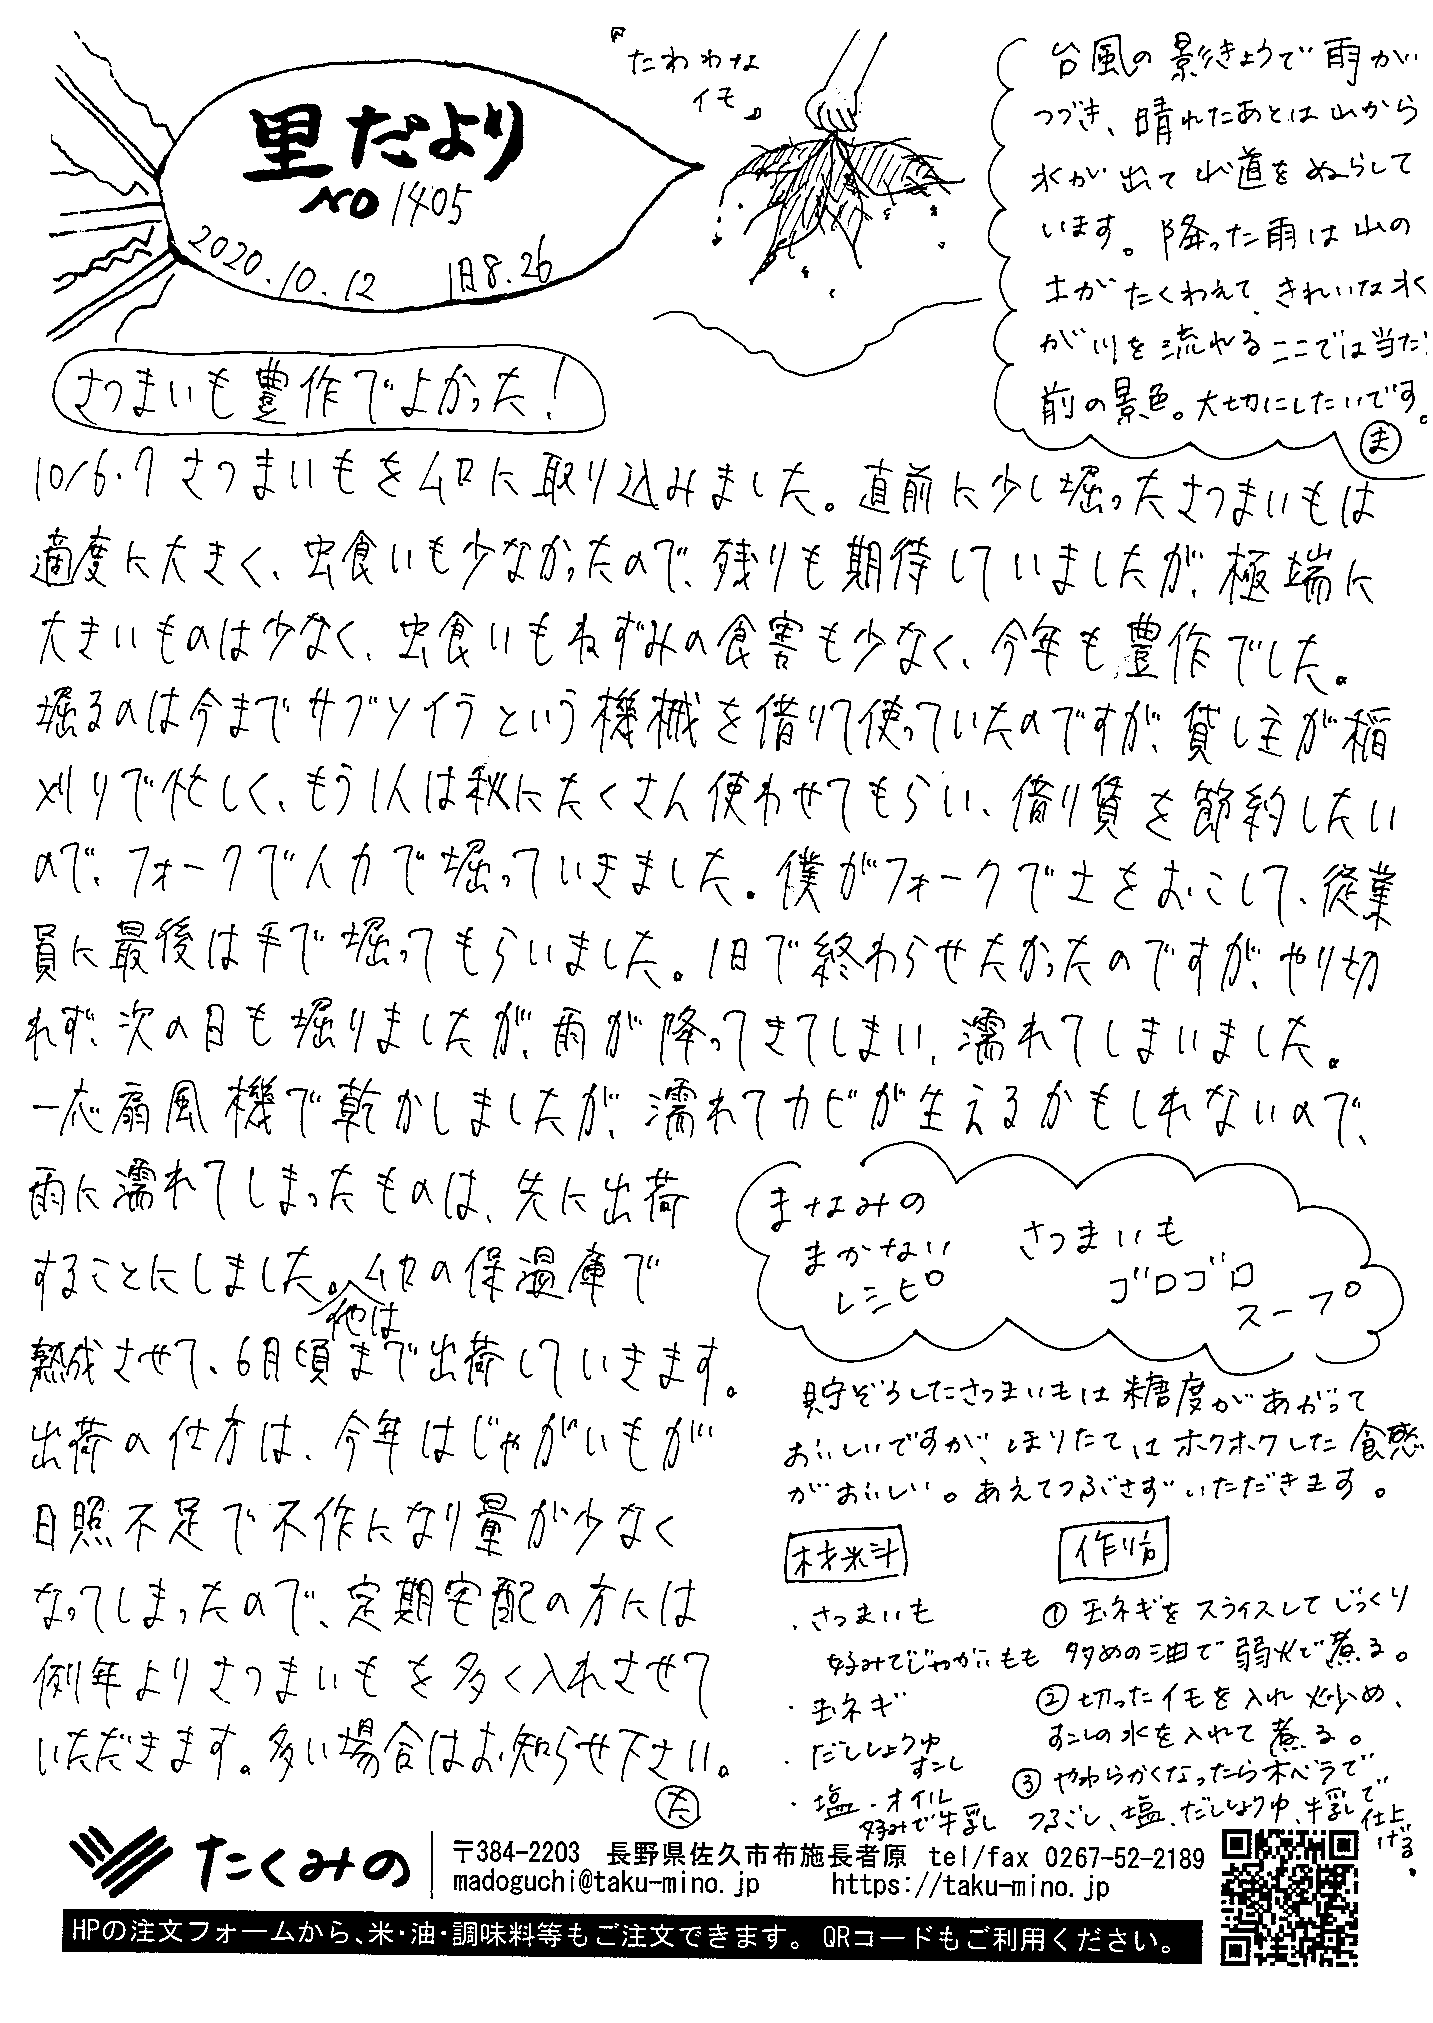 里だより
NO 1405
2020.10.12 旧8.26
『たわわな
イモ』
台風の影きょうで雨が
つづき、晴れたあとは山から
水が出て山道をぬらして
います。降った雨は山の
土がたくわえて、きれいな水
が川を流れる ここでは当た
前の景色。大切にしたいです。
ま
さつまいも豊作でよかった!
10/6.7 さつまいもをムロに取り込みました。直前に少し堀ったさつまいもは
適度に大きく、虫食いも少なかったので、残りも期待していましたが、極端に
大きいものは少なく、虫食いもねずみの食害も少なく、今年も豊作でした。
堀るのは今までサブソイラという機械を借りて使っていたのですが、貸し主が稲
刈りで忙しく、もう1人は秋にたくさん使わせてもらい、借り賃を節約したい
ので、フォークで人力で堀っていきました。僕がフォークで土をおこして、従業
員に最後は手で堀ってもらいました。1日で終わらせたかったのですが、やり切
れず、次の日も堀りましたが、雨が降ってきてしまい、濡れてしまいました。
一応扇風機で乾かしましたが、濡れてカビが生えるかもしれないので、
雨に濡れてしまったものは、先に出荷
することにしました。他はムロの保温庫で
熟成させて、6月頃まで出荷していきます。
出荷の仕方は、今年はじゃがいもが
日照不足で不作になり量が少なく
なってしまったので、定期宅配の方には
例年よりさつまいもを多く入れさせて
いただきます。多い場合はお知らせ下さい。
た
まなみの
まかない
レシピ
さつまいも
ゴロゴロ
スープ
貯ぞうしたさつまいもは糖度があがって
おいしいですが、ほりたてはホクホクした食感
がおいしい。あえてつぶさずいただきます。
材料
・さつまいも
好みでじゃがいもも
・玉ネギ
・だししょうゆ
すこし
・塩・オイル
好みで牛乳
作り方
① 玉ネギをスライスしてじっくり
多めの油で弱火で煮る。
② 切ったイモを入れ炒め、
すこしの水を入れて煮る。
③ やわらかくなったら木ベラで
つぶし、塩、だししょうゆ、牛乳で仕上
げる。
たくみの
〒384-2203 長野県佐久市布施長者原 tel/fax 0267-52-2189
madoguchi@taku-mino.jp https://taku-mino.jp
HPの注文フォームから、米・油・調味料等もご注文できます。QRコードもご利用ください。